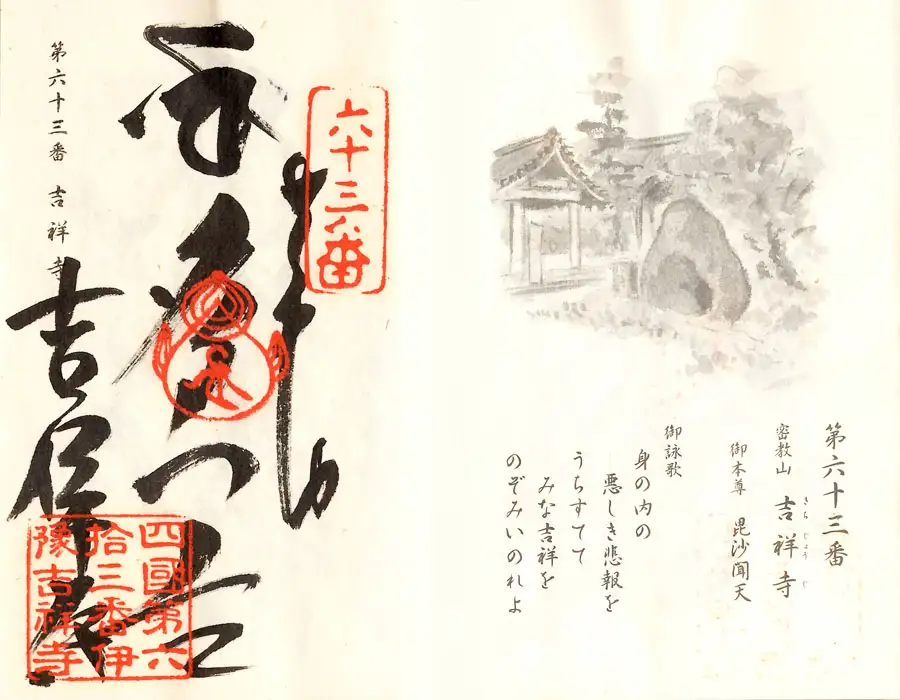 第六十三番
密教山 吉祥寺
きちじょうじ
御本尊 毘沙聞天
御詠歌
身の内の
悪しき悲報を
うちすてて
みな吉祥を
のぞみいのれよ
六十三番
四國第六
拾三番伊
豫吉祥寺
吉祥寺
第六十三番 吉祥寺